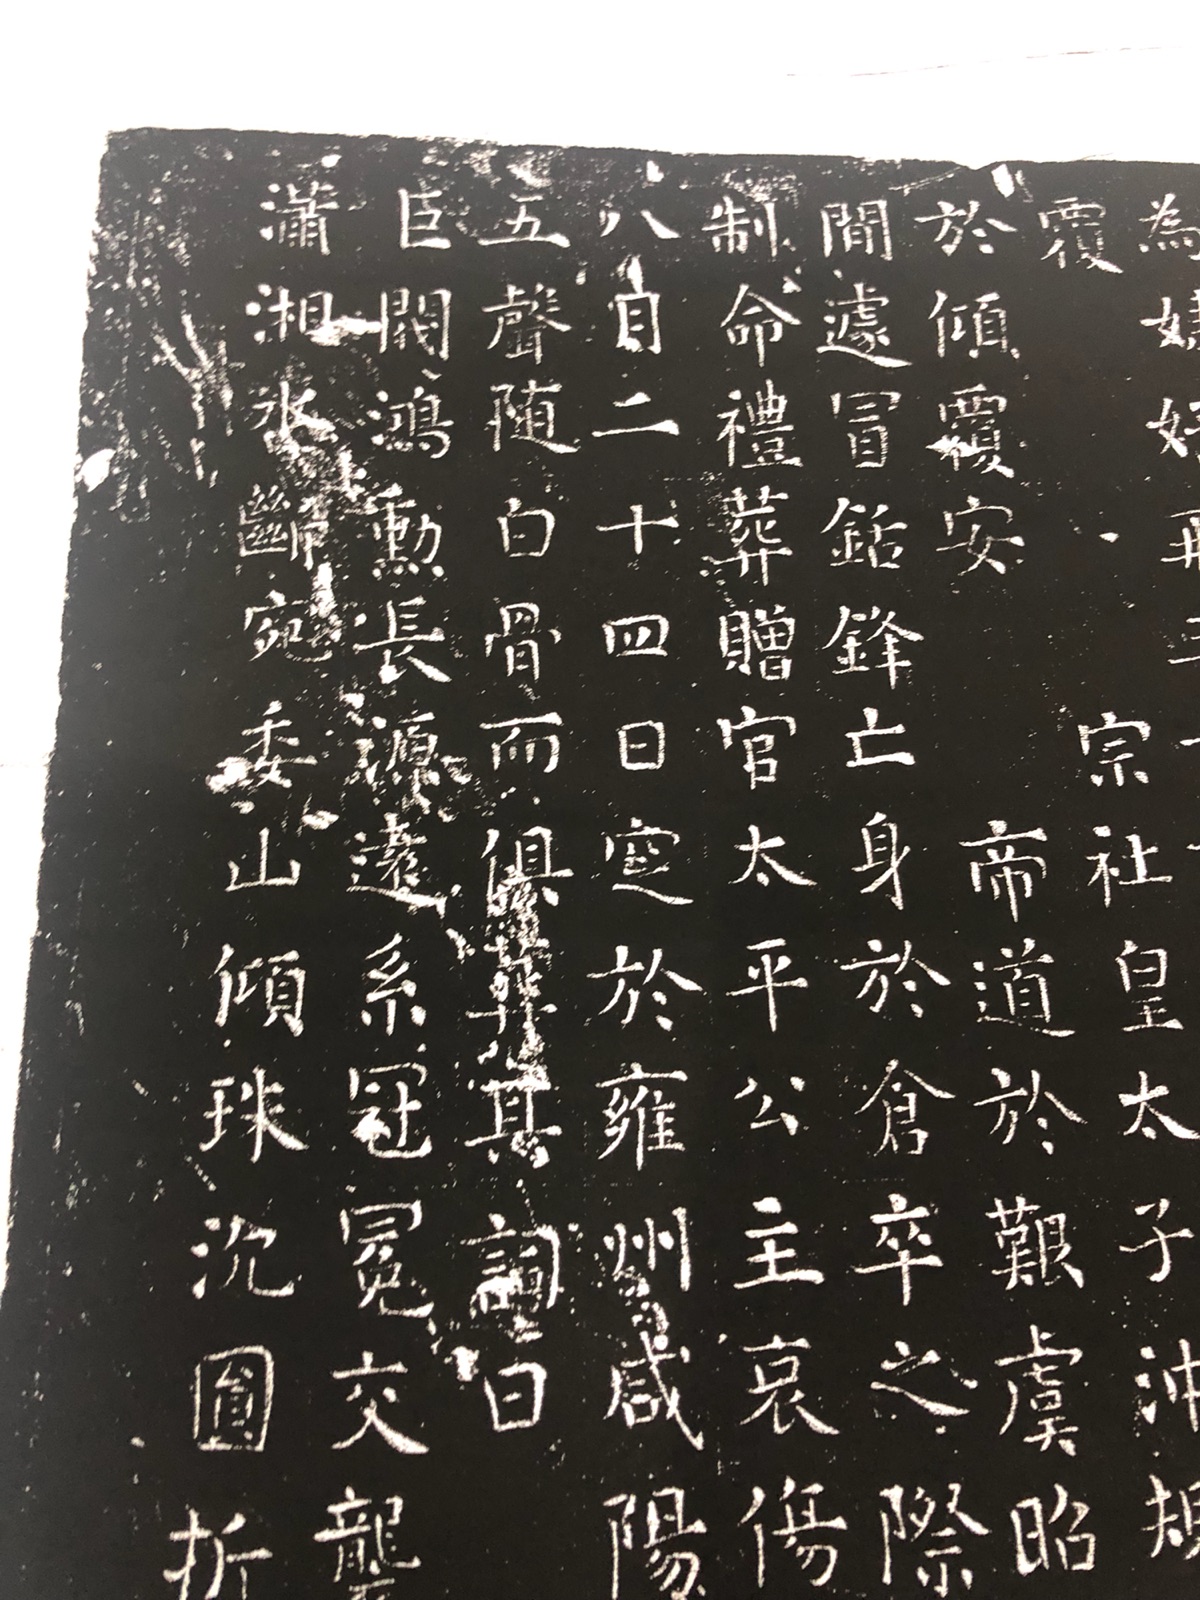 為婕妤再
覆　宗社皇太子沖規
於傾覆安　帝道於艱虞昭
間遽冒銛鋒亡身於倉卒之際
制命禮葬贈官太平公主哀傷
八月二十四日窆於雍州咸陽
五聲随白骨而俱葬其詞曰
臣閥鴻勳長源遠系冠冕交襲
瀟湘水斷宛委山傾珠沉圓折